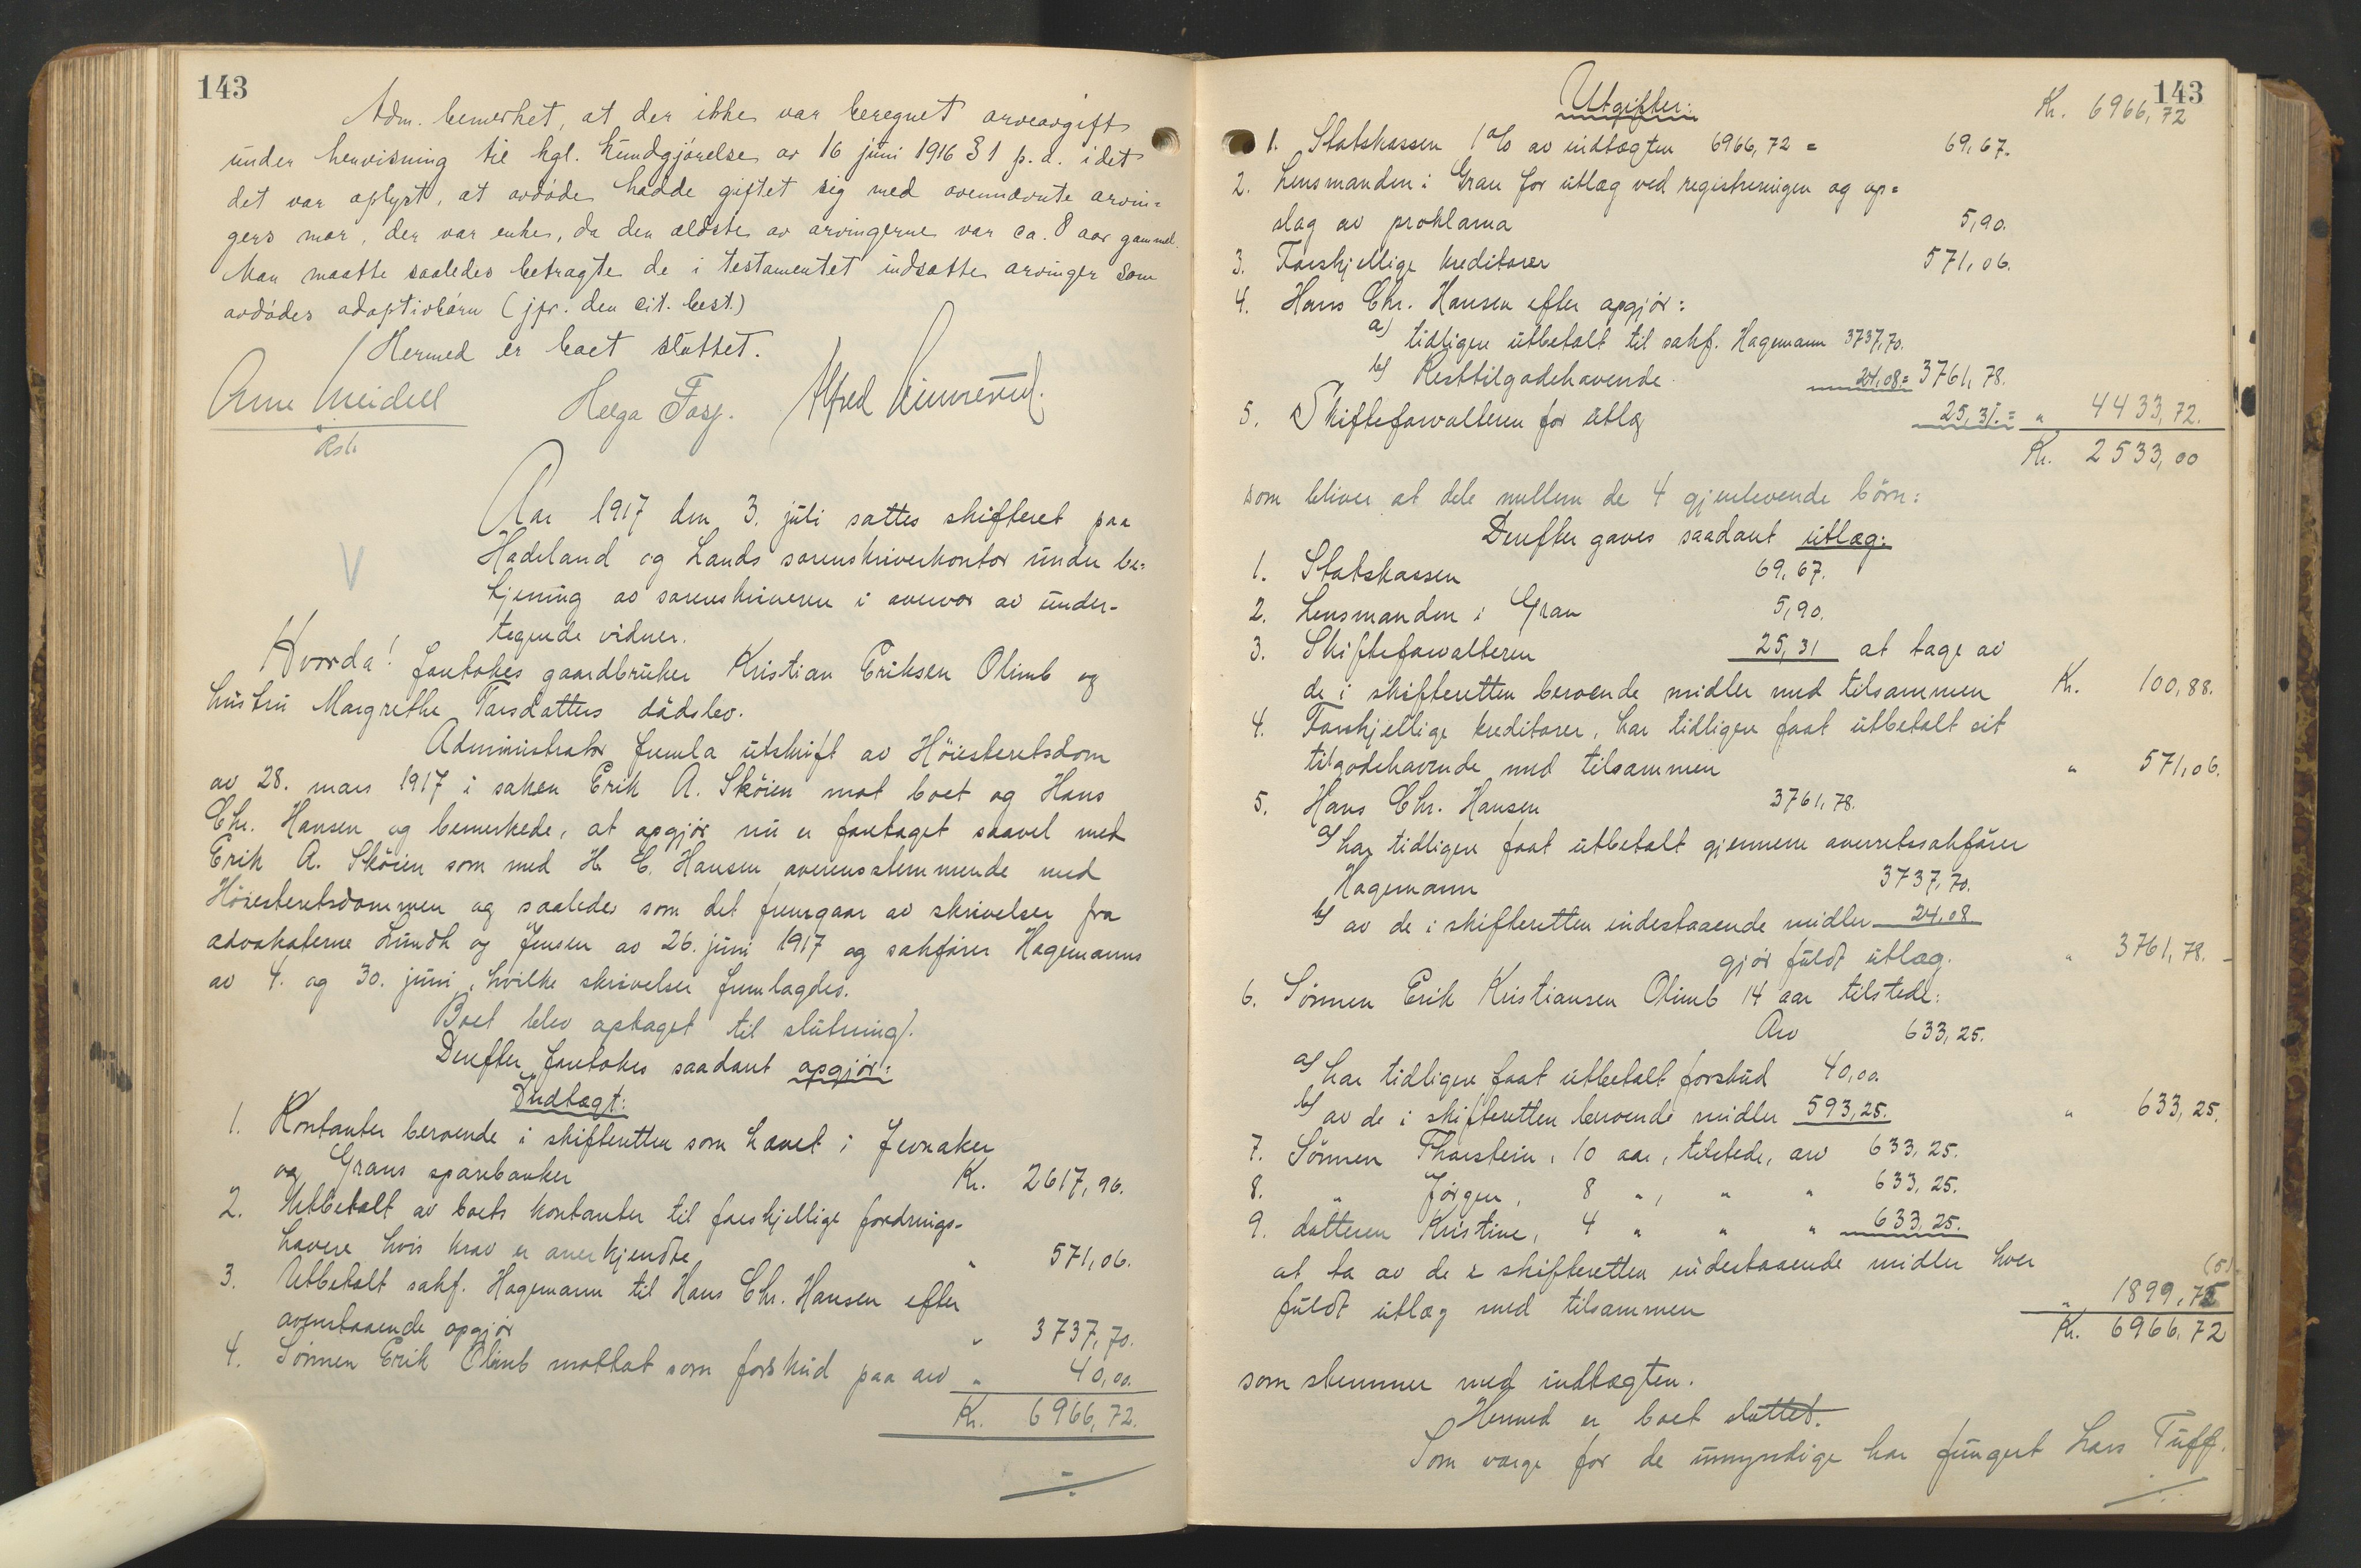 143
Adm. bemerket, at der ikke var beregnet arveavgift
under henvisning til kgl. kundgjörelse av 16 juni 1916 § 1 p. d. idet
det var oplyst, at avdöde hadde giftet sig med ovennævnte arvin=
gers mor, der var enke, da den ældste av arvingerne var ca. 8 aar gammel.
Man maatte saaledes betragte de i testamentet indsatte arvinger som
avdödes adoptivbörn (jfr. den cit. best.)
Hermed er boet sluttet.
Arne Meidell Helga Fosp. Alfred
Aar 1917 den 3. juli sattes skifteret paa
Hadeland og Lands sorenskriverkontor under be=
tjening av sorenskriveren i overvær av under-
tegnede vidner.
Hvorda!
foretokes gaardbruker Kristian Eriksen Olimb og
hustru Margrethe Larsdatters dödsbo.
Administrator fremla utskrift av Höiesteretsdom
av 28. mars 1917 i saken Erik A. Sköien mot boet og Hans
Chr. Hansen og bemerkede, at opgjör nu er foretaget saavel med
Erik A. Sköien som med H. C. Hansen overensstemmende med
Höiesteretsdommen og saaledes som det fremgaar av skrivelser fra
advokaterne Lundh og Jensen av 26. juni 1917 og sakförer Hagemanns
av 4. og 30. juni, hvilke skrivelser fremlagdes.
Boet blev optaget til slutning.
Derefter foretokes saadant opgjör:
Indtægt:
1. Kontanter beroende i skifteretten som hævet i Jevnaker
og Grans sparebanker Kr. 2617,96.
2. Utbetalt av boets kontanter til forskjellige fordrings-
havere hvis krav er anerkjendte " 571,06.
3. Utbetalt sakf. Hagemann til Hans Chr. Hansen efter
ovenstaaende opgjör " 3737,70.
4. Sönnen Erik Olimb mottat som forskud paa arv " 40,00.
Kr. 6966,72.
143
Utgifter: Kr. 6966,72
1. Statskassen 1 % av indtægten 6966,72 = 69,67.
2. Lensmanden i Gran for utlæg ved registreringen og op=
slag av proklama 5,90.
3. Forskjellige kreditorer 571,06.
4. Hans Chr. Hansen efter opgjör:
a) tidligere utbetalt til sakf. Hagemann 3737,70.
b) Resttilgodehavende 24,08 = 3761,78.
5. Skifteforvalteren for utlæg 25,31. = " 4433,72.
Kr. 2533,00
som bliver at dele mellem de 4 gjenlevende börn:
Derefter gaves saadant utlæg:
1. Statskassen 69,67.
2. Lensmanden i Gran 5,90.
3. Skifteforvalteren 25,31 at tage av
de i skifteretten beroende midler med tilsammen Kr. 100,88.
4. Forskjellige kreditorer, har tidligere faat utbetalt sit
tilgodehavende med tilsammen " 571,06.
5. Hans Chr. Hansen 3761,78.
a) har tidligere faat utbetalt gjennem overretssakförer
Hagemann 3737,70.
b) av de i skifteretten indestaaende midler 24,08
gjör fuldt utlæg. " 3761,78.
6. Sönnen Erik Kristiansen Olimb 14 aar tilstede:
Arv 633,25.
a) har tidligere faat utbetalt forskud 40,00.
b) av de i skifteretten beroende midler 593,25. " 633,25.
7. Sönnen Thorstein, 10 aar, tilstede, arv 633,25.
8. " Jörgen, 8 ", " " 633,25.
9. datteren Kristine, 4 " " " 633,25.
at ta av de i skifteretten indestaaende midler hver
(5)
fuldt utlæg med tilsammen " 1899,75
Kr. 6966,72
som stemmer med indtægten.
Hermed er boet sluttet.
Som værge for de umyndige har fungert Lars Tuff.